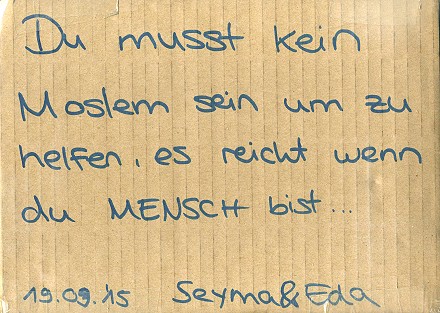 Du musst kein
Moslem sein um zu
helfen, es reicht wenn
du MENSCH bist...
19.09.15 Seyma&Eda